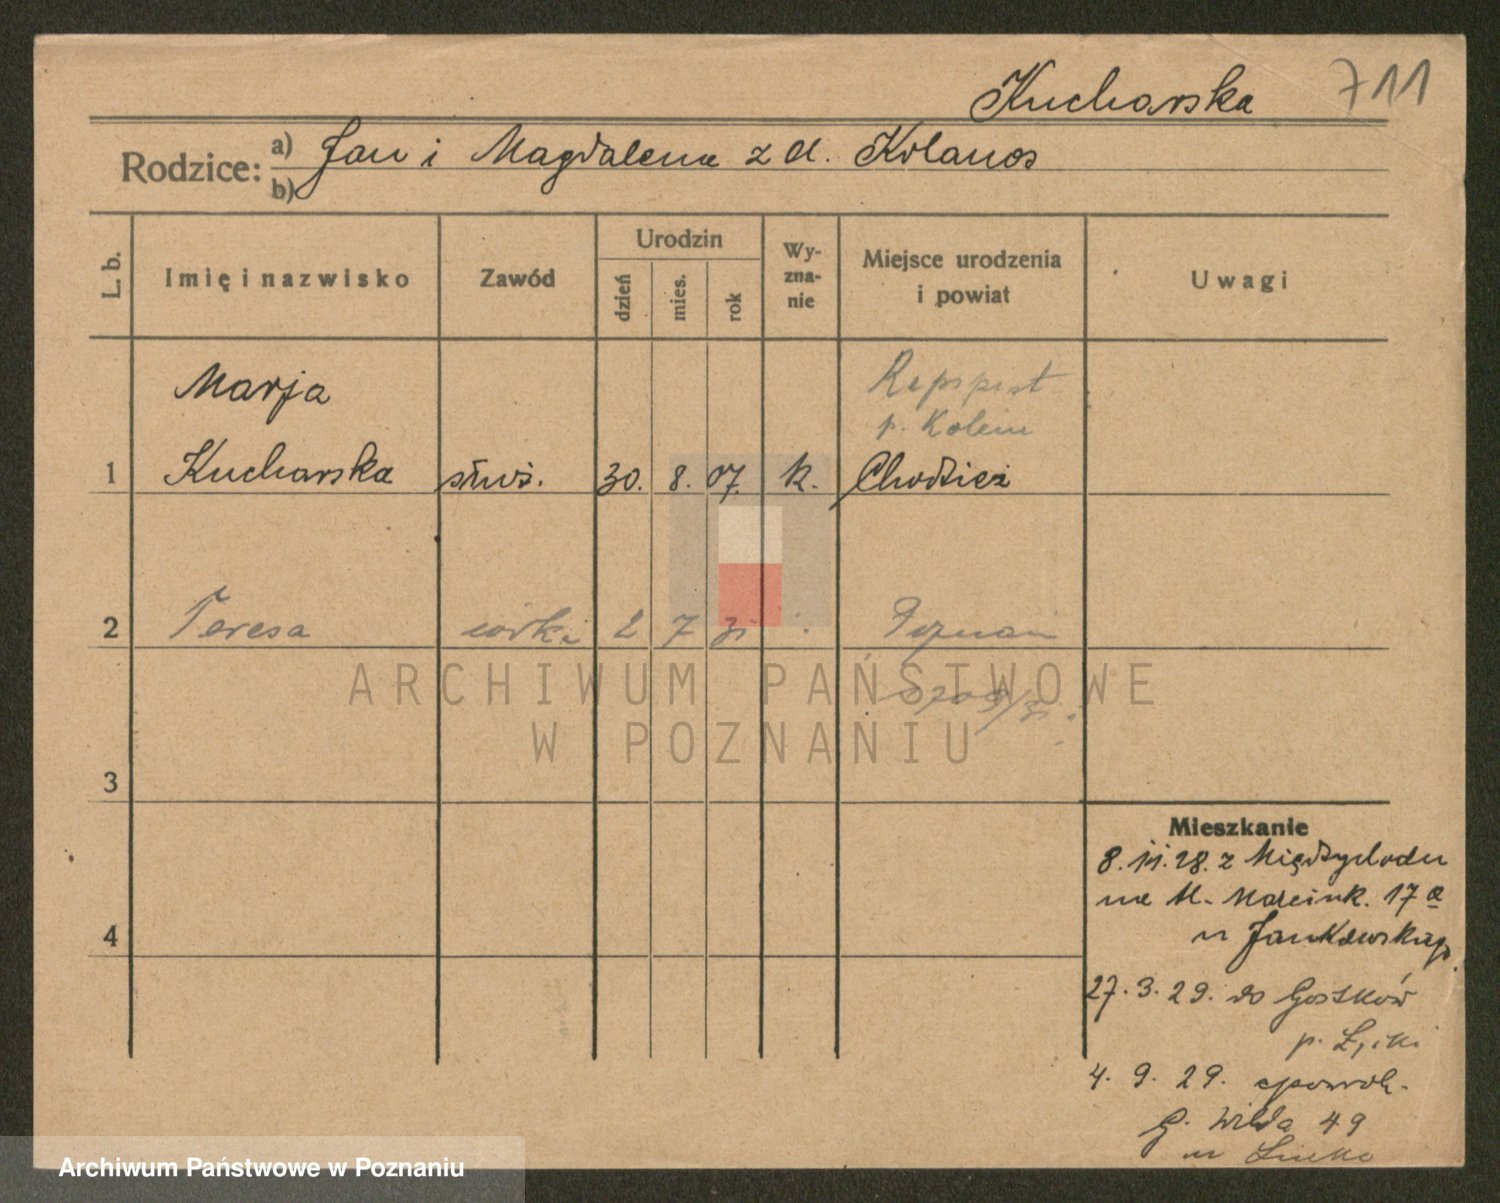 Kucharska 711
Rodzice: a) Jan i Magdalena z d. Kolanos
b)
L. b.
Imię i nazwisko
Zawód
Urodzin
dzień
mies.
rok
Wy-
zna-
nie
Miejsce urodzenia
i powiat
Uwagi
Marja
p.
1 Kucharska służ. 30. 8. 07. k. Chodzież
2 Teresa córka 2 7 31 Poznań
3
4
ARCHIWUM PAŃSTWOWE
W POZNANIU
Mieszkanie
8. 11. 28. z Międzychodu
na Al. Marcink. 17 a
u Jankowskiego
27. 3. 29. do Gostków
p.
4. 9. 29. spowrot.
G. Wilda 49
u
Archiwum Państwowe w Poznaniu